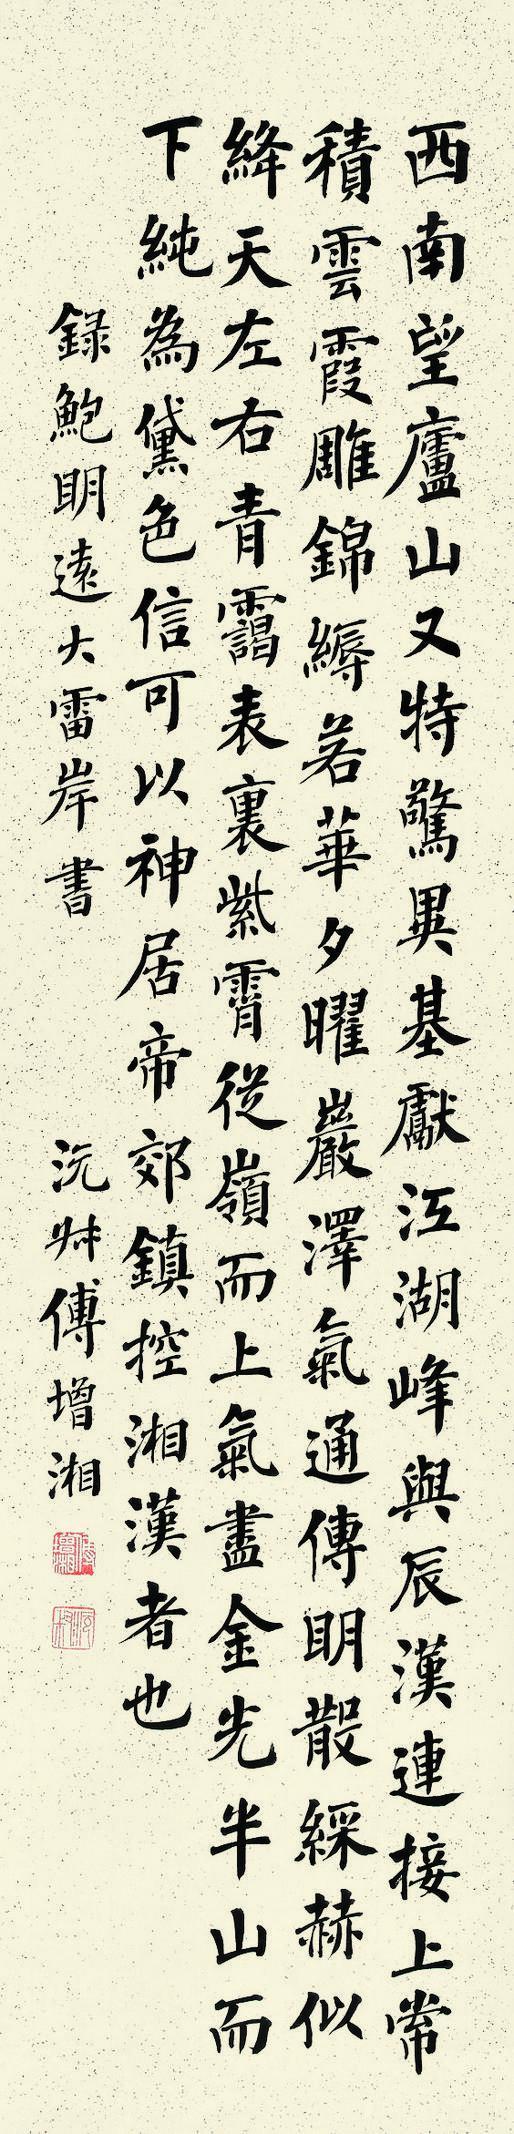 西南望廬山又特驚異基獻江湖峰與辰漢連接上常
積雲霞雕錦縟若華夕曜巖澤氣通傳明散綵赫似
絳天左右青靄表裏紫霄從嶺而上氣盡金光半山而
下純為黛色信可以神居帝郊鎮控湘漢者也
録鮑明遠大雷岸書
沅尗傅增湘
傅增湘
沅尗